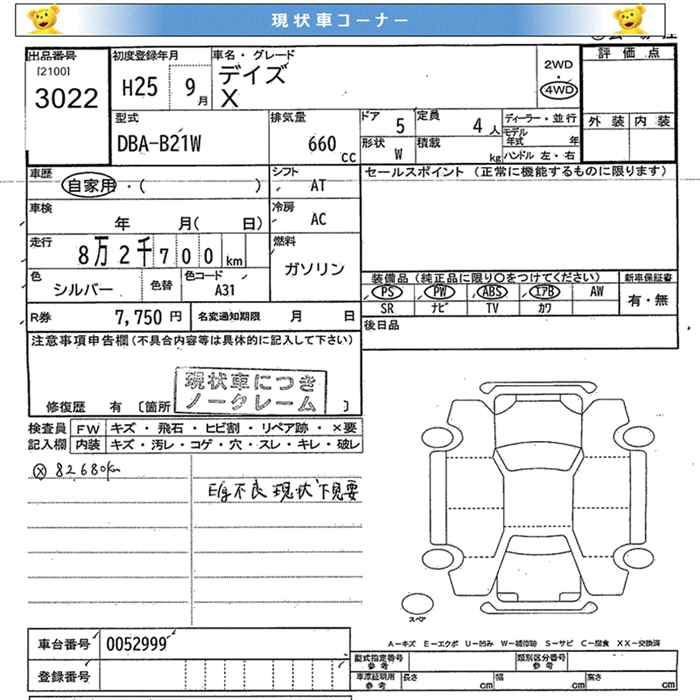 現状車コーナー
出品番号 初度登録年月 車名・グレード 評価点
[2100] デイズ 2WD
3022 H25 9月 X ・
4WD
型式 排気量 ドア 5 定員 4人 ディーラー・並行 外装 内装
DBA-B21W 660 cc 形状 W 積載 kg モデル年式 年
ハンドル 左・右
車歴 自家用・( ) シフト AT セールスポイント (正常に機能するものに限ります)
車検 年 月( 日) 冷房 AC
走行 8万2千700km 燃料 ガソリン
色 シルバー 色替 色コード A31 装備品 (純正品に限り○をつけてください) 新車保証書
PS PW ABS エアB AW 有・無
SR ナビ TV カワ
R券 7,750円 名変通知期限 月 日 後日品
注意事項申告欄(不具合内容等は具体的に記入して下さい)
現状車につき
ノークレーム
修復歴 有 [箇所 ]
検査員 FW キズ・飛石・ヒビ割・リペア跡・×要
記入欄 内装 キズ・汚レ・コゲ・穴・スレ・キレ・破レ
ⓧ 82680km
E/g不良 現状 下見要
スペア
車台番号 0052999
A-キズ E-エクボ U-凹み W-補修跡 S-サビ C-腐食 XX-交換済
型式指定番号 参考 類別区分番号 参考
登録番号 車庫証明用 参考 長さ cm 幅 cm 高さ cm